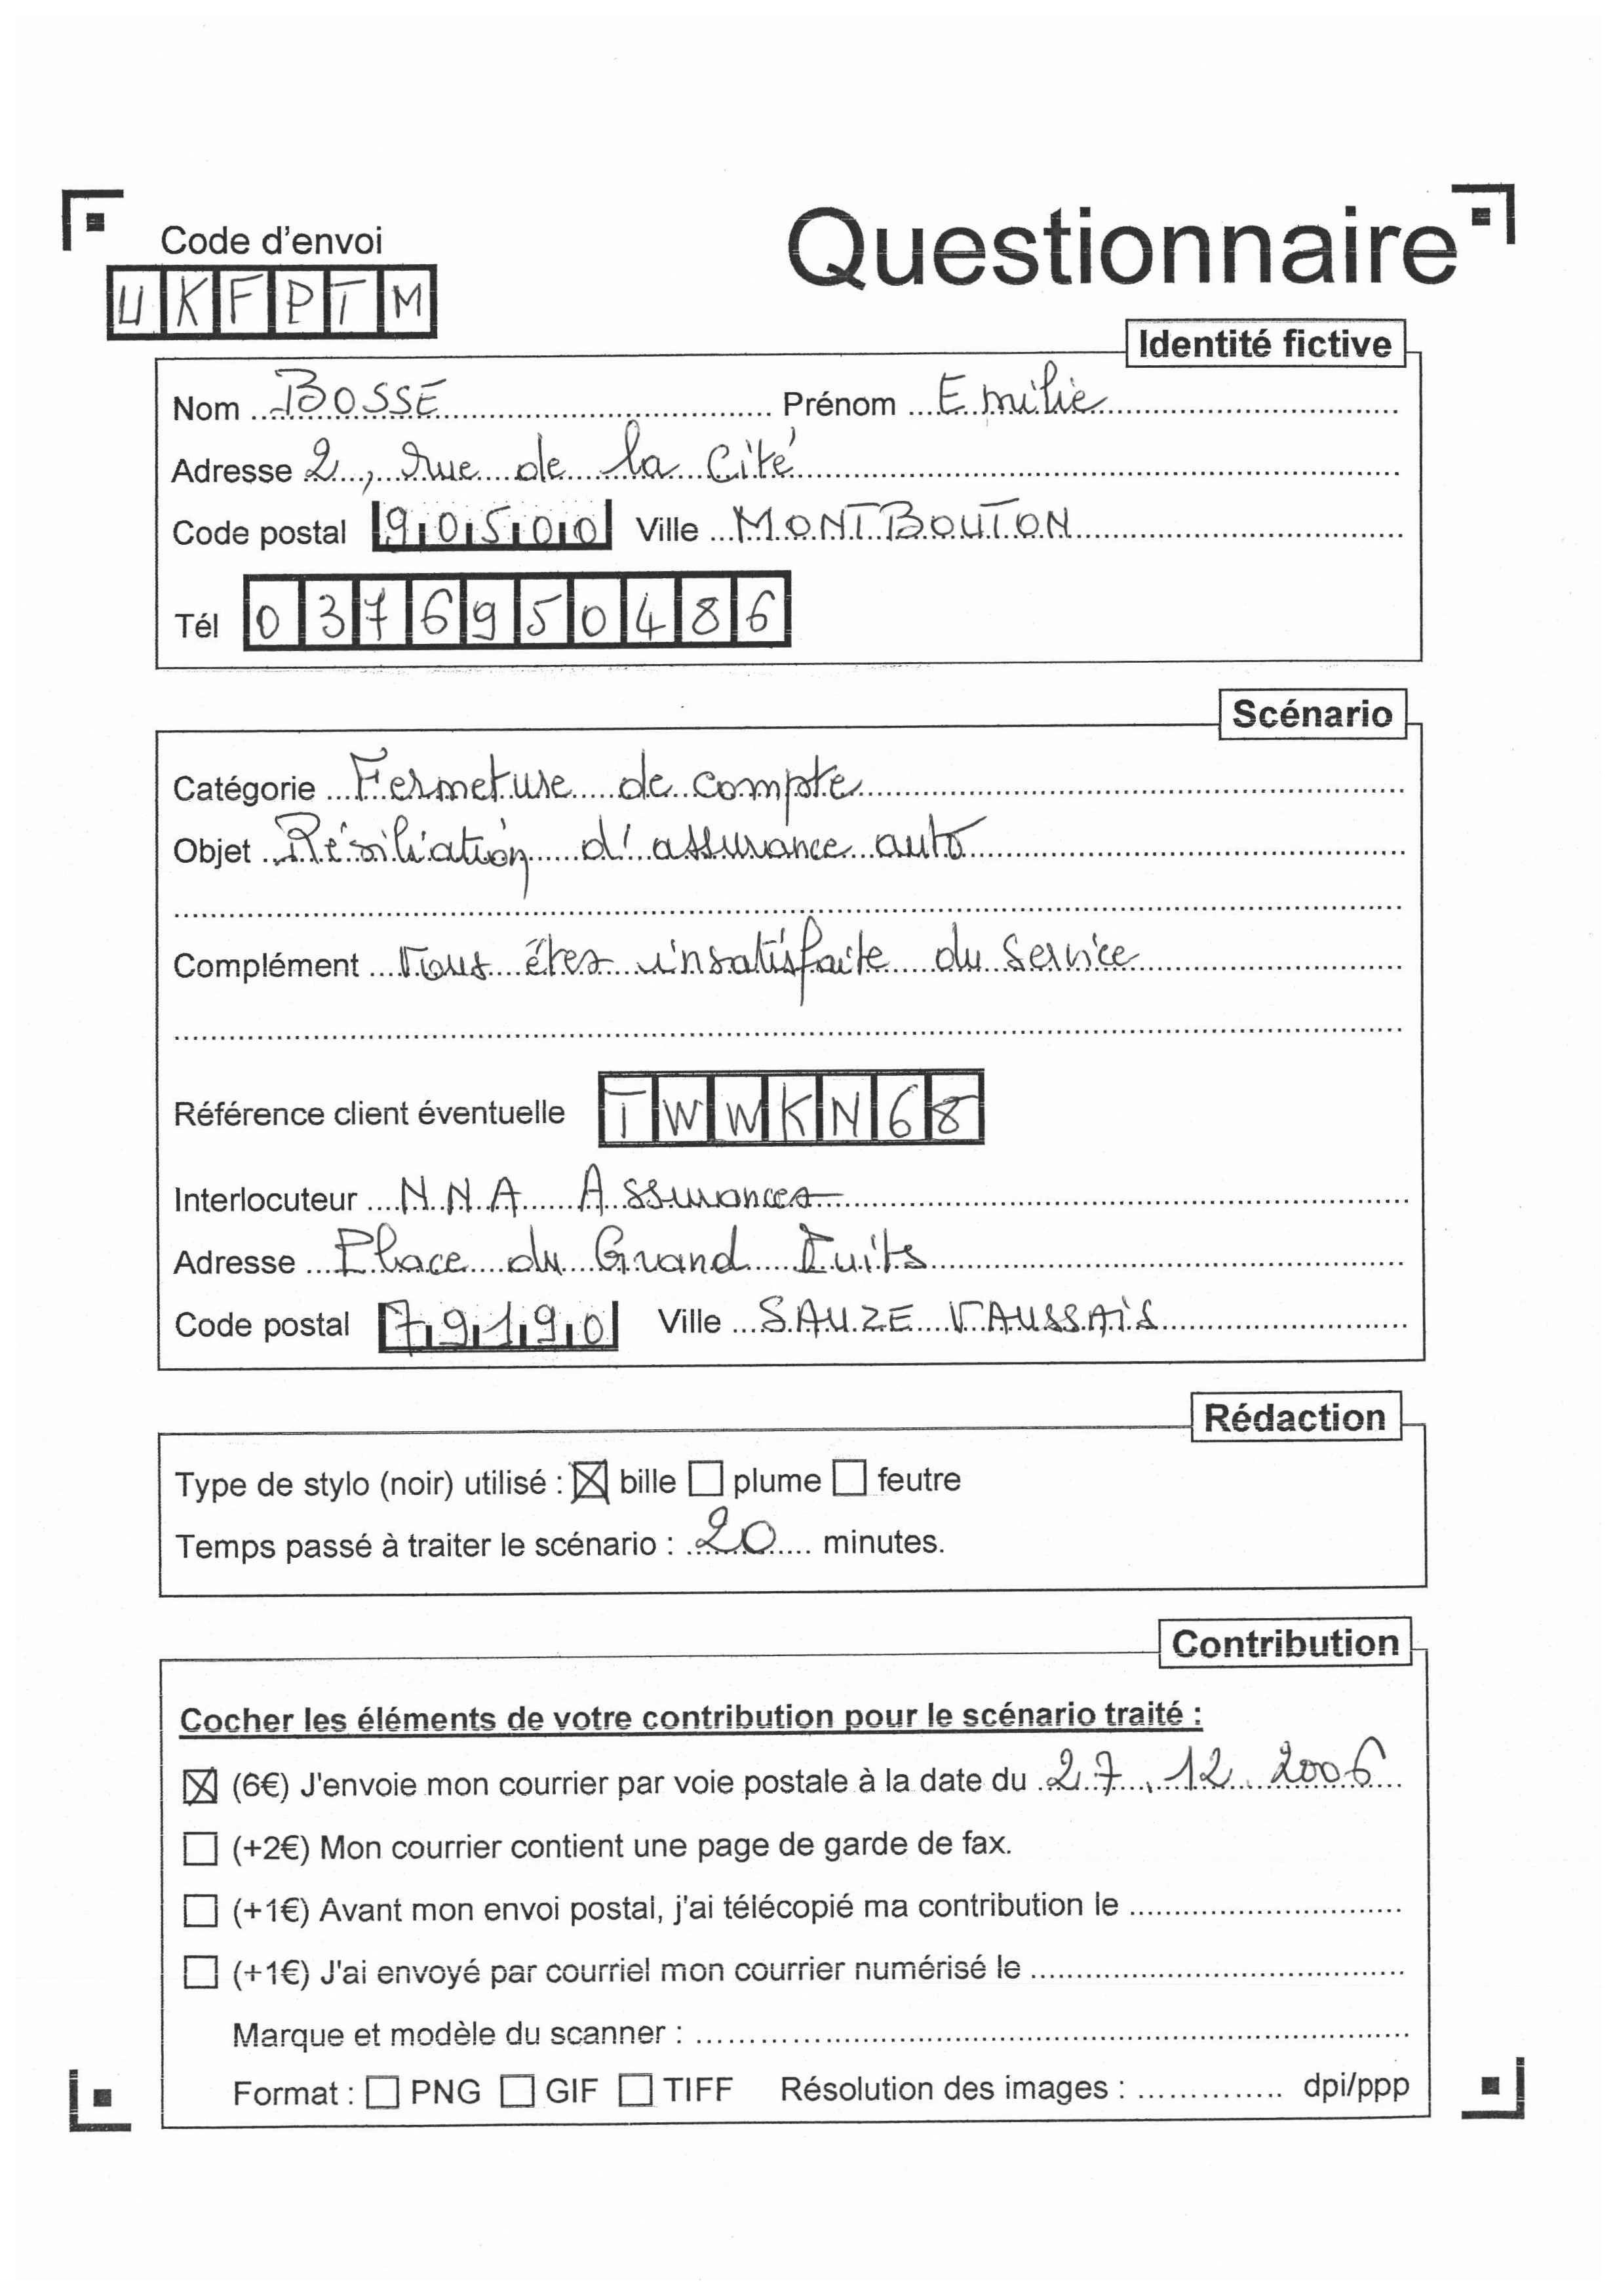 Code d'envoi
Questionnaire
UKFPTM
Identité fictive
Nom BOSSE Prénom Emilie
Adresse 2, rue de la Cité
Code postal 90500 Ville MONTBOUTON
Tél 0376950486
Scénario
Catégorie Fermeture de compte
Objet Résiliation d'assurance auto
Complément Vous êtes insatisfaite du service
Référence client éventuelle TWWKN68
Interlocuteur NNA Assurances
Adresse Place du Grand Puits
Code postal 79190 Ville SAUZE VAUSSAIS
Rédaction
Type de stylo (noir) utilisé : ☒ bille ☐ plume ☐ feutre
Temps passé à traiter le scénario : 20 minutes.
Contribution
Cocher les éléments de votre contribution pour le scénario traité :
☒ (6€) J'envoie mon courrier par voie postale à la date du 27.12.2006
☐ (+2€) Mon courrier contient une page de garde de fax.
☐ (+1€) Avant mon envoi postal, j'ai télécopié ma contribution le
☐ (+1€) J'ai envoyé par courriel mon courrier numérisé le
Marque et modèle du scanner :
Format : ☐ PNG ☐ GIF ☐ TIFF Résolution des images : dpi/ppp